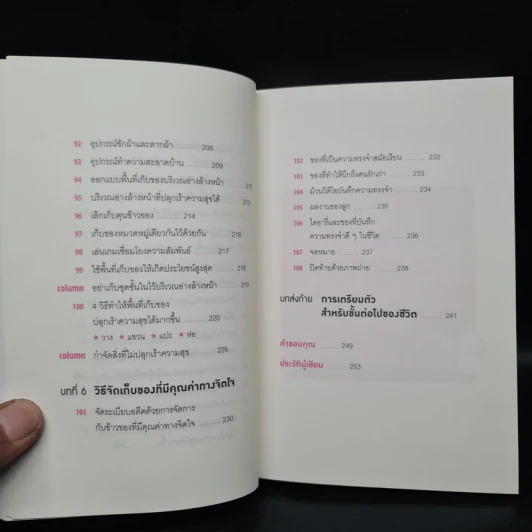 92 อุปกรณ์ซักผ้าและตากผ้า 208
93 อุปกรณ์ทำความสะอาดบ้าน 209
94 ออกแบบพื้นที่เก็บของบริเวณอ่างล้างหน้า
95 บริเวณอ่างล้างหน้าที่ปลุกเร้าความสุขได้
96 เลิกเก็บตุนข้าวของ 214
97 เก็บของหมวดหมู่เดียวกันไว้ด้วยกัน 216
98 เล่นเกมเชื่อมโยงความสัมพันธ์ 217
99 ใช้พื้นที่เก็บของให้เกิดประโยชน์สูงสุด 218
column อย่าเก็บชุดชั้นในไว้บริเวณอ่างล้างหน้า 219
100 4 วิธีทำให้พื้นที่เก็บของ
ปลุกเร้าความสุขได้มากขึ้น 220
* วาง * แขวน * แปะ * ห่อ
column กำจัดสิ่งที่ไม่ปลุกเร้าความสุข 226
บทที่ 6 วิธีจัดเก็บของที่มีคุณค่าทางจิตใจ
101 จัดระเบียบอดีตด้วยการจัดการ
กับข้าวของที่มีคุณค่าทางจิตใจ 230
102 ของที่เป็นความทรงจำสมัยเรียน 232
103 ของที่ทำให้นึกถึงคนรักเก่า 233
104 ม้วนวิดีโอบันทึกความทรงจำ 234
105 ผลงานของลูก 235
106 ไดอารี่และของที่บันทึก
ความทรงจำดี ๆ ในชีวิต 236
107 จดหมาย 237
108 ปิดท้ายด้วยภาพถ่าย 238
บทส่งท้าย การเตรียมตัว
สำหรับขั้นต่อไปของชีวิต 241
คำขอบคุณ 249
ประวัติผู้เขียน 253